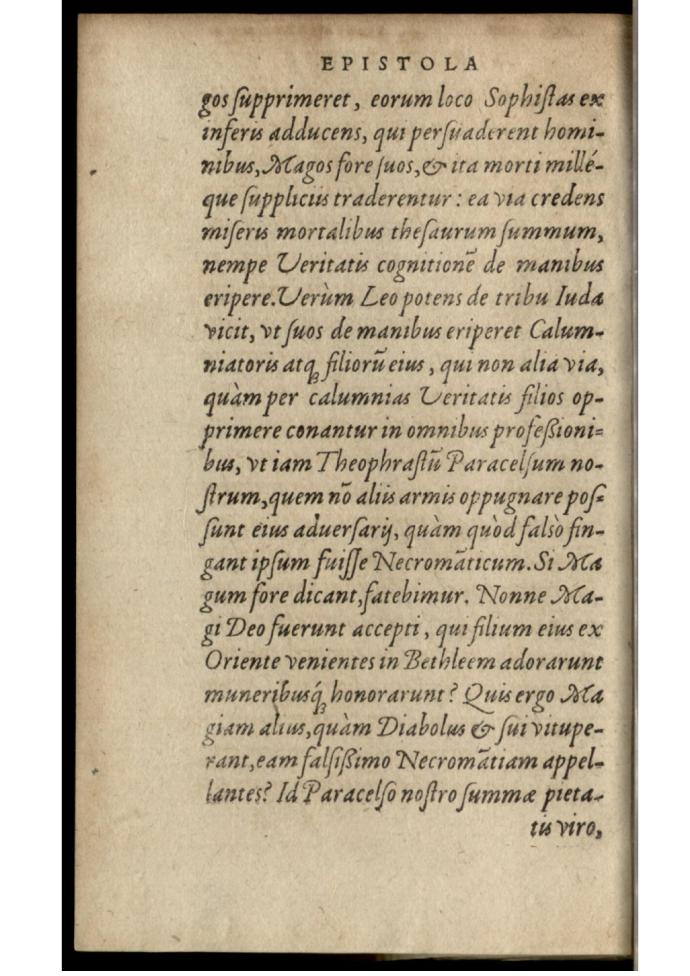 EPISTOLA
gos ſupprimeret, eorum loco Sophiſtas ex
inferis adducens, qui perſuaderent homi-
nibus, Magos fore ſuos, & ita morti millé-
que ſuppliciis traderentur: ea via credens
miſeris mortalibus theſaurum ſummum,
nempe Veritatis cognitionẽ de manibus
eripere. Verùm Leo potens de tribu Iuda
vicit, vt ſuos de manibus eriperet Calum-
niatoris atq; filiorũ eius, qui non alia via,
quàm per calumnias Veritatis filios op-
primere conantur in omnibus profeßioni=
bus, vt iam Theophraſtũ Paracelſum no-
ſtrum, quem nõ aliis armis oppugnare poſ=
ſunt eius aduerſarij, quàm quòd falsò fin-
gant ipſum fuiſſe Necromãticum. Si Ma
gum fore dicant, fatebimur. Nonne Ma-
gi Deo fuerunt accepti, qui filium eius ex
Oriente venientes in Bethleem adorarunt
muneribusq́; honorarunt? Quis ergo Ma
giam alius, quàm Diabolus & ſui vitupe-
rant, eam falſißimo Necromãtiam appel-
lantes? Id Paracelſo noſtro ſummæ pieta-
tis viro,